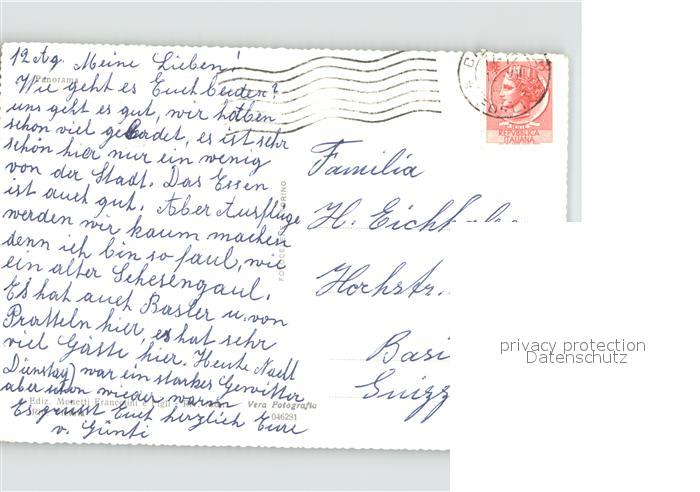 12 Aug. Meine Lieben!
Panorama
Wie geht es Euch beiden?
uns geht es gut, wir haben
schon viel gebadet, es ist sehr
schön hier nur ein wenig
von der Stadt. Das Essen
ist auch gut. Aber Ausflüge
werden wir kaum machen
denn ich bin so faul, wie
ein alter Schesengaul.
Es hat auch Basler u. von
Pratteln hier, es hat sehr
viel Gäste hier. Heute Nacht
Dienstag) war ein starkes Gewitter
aber schon wieder warm
Es grüsst Euch herzlich Eure
Ediz. Monetti
Vera Fotografia
046281
REPVBBLICA
ITALIANA
Familia
H.
Hochstr.
Basi
Suizz
privacy protection
Datenschutz